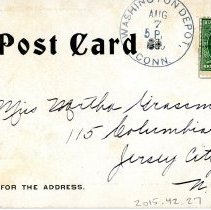 WASHINGTON DEPOT,
AUG
7
5 P
CONN.
Post Card
Miss Martha Grassm
115 Columbia
Jersey City
N
FOR THE ADDRESS.
2015.42.27